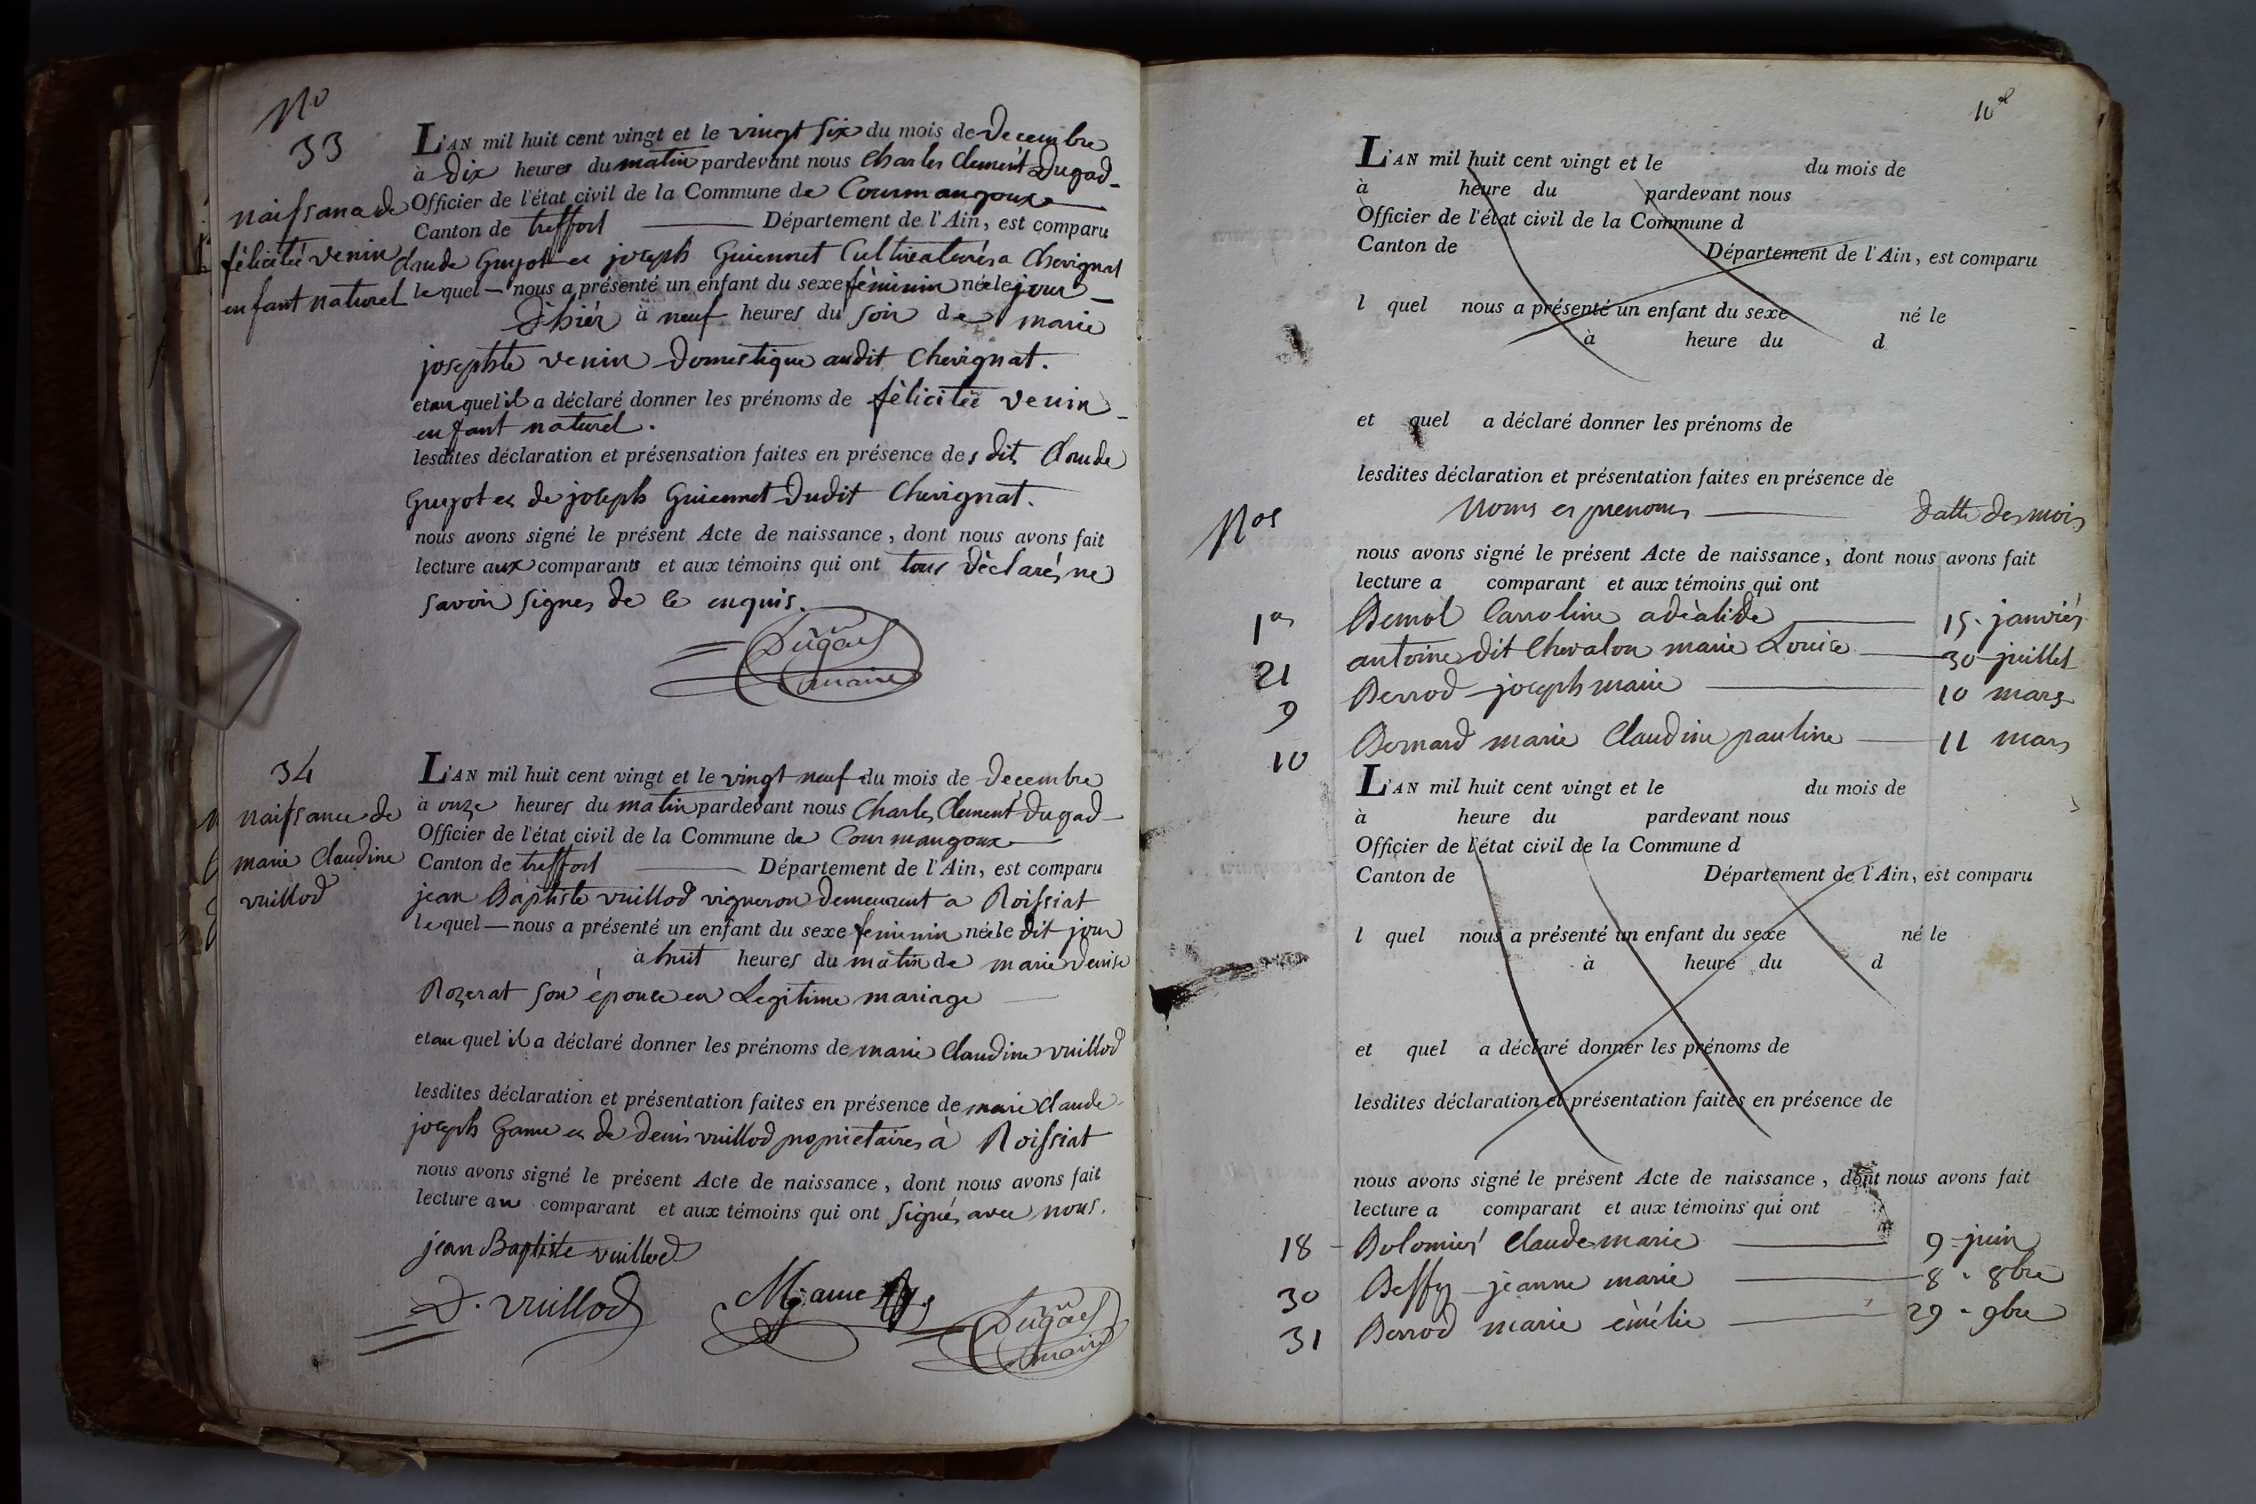 No
33
naissance de
félicitée venin
enfant naturel
L'AN mil huit cent vingt et le vingt six du mois de Decembre
à dix heures du matin pardevant nous Charles Clement Dugad
Officier de l'état civil de la Commune de Courmangoux
Canton de treffort Département de l'Ain, est comparu
Claude Guyot et joseph Guiennet Cultivateurs a Chevignat
lequel nous a présenté un enfant du sexe féminin née le jour
D'hièr à neuf heures du soir de marie
josephte venin Domestique audit Chevignat.
et au quel il a déclaré donner les prénoms de félicitée venin
enfant naturel.
lesdites déclaration et présensation faites en présence des dits Claude
Guyot et de joseph Guiennet dudit Chevignat.
nous avons signé le présent Acte de naissance, dont nous avons fait
lecture aux comparants et aux témoins qui ont tous déclarés ne
savoir signes de ce enquis.
Dugad
maire
34
naissance de
marie Claudine
vuillod
L'AN mil huit cent vingt et le vingt neuf du mois de Decembre
à onze heures du matin pardevant nous Charles Clement Dugad
Officier de l'état civil de la Commune de Courmangoux
Canton de treffort Département de l'Ain, est comparu
jean Baptiste vuillod vigneron demeurent a Roissiat
lequel nous a présenté un enfant du sexe feminin née le dit jour
à huit heures du matin de marie denise
Rozerat son épouse en Legitime mariage
et au quel il a déclaré donner les prénoms de marie Claudine vuillod
lesdites déclaration et présentation faites en présence de marie Claude
joseph Game et de denis vuillod propietaires à Roissiat
nous avons signé le présent Acte de naissance, dont nous avons fait
lecture au comparant et aux témoins qui ont signés avec nous.
jean Baptiste vuillod
D. vuillod
Dugad
maire
10
L'AN mil huit cent vingt et le du mois de
à heure du pardevant nous
Officier de l'état civil de la Commune d
Canton de Département de l'Ain, est comparu
l quel nous a présenté un enfant du sexe né le
à heure du d
et quel a déclaré donner les prénoms de
lesdites déclaration et présentation faites en présence de
Nos Noms et prenoms datte des mois
nous avons signé le présent Acte de naissance, dont nous avons fait
lecture a comparant et aux témoins qui ont
1er Bemol Carroline adèalide 15. janviés
21 antoine dit Chevalon marie Louise 30 juillet
9 Berrod joseph marie 10 mars
10 Bernard marie Claudine pauline 11 mars
L'AN mil huit cent vingt et le du mois de
à heure du pardevant nous
Officier de l'état civil de la Commune d
Canton de Département de l'Ain, est comparu
l quel nous a présenté un enfant du sexe né le
à heure du d
et quel a déclaré donner les prénoms de
lesdites déclaration et présentation faites en présence de
nous avons signé le présent Acte de naissance, dont nous avons fait
lecture a comparant et aux témoins qui ont
18 Bolomiés Claude marie 9 juin
30 Beffy jeanne marie 8. 8bre
31 Berrod marie èmélie 29. 9bre